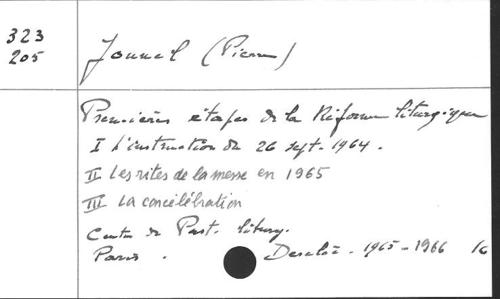 323
205
Jounel (Pierre)
Premières étapes de la Réforme liturgique
I L'instruction du 26 sept. 1964.
II Les rites de la messe en 1965
III La concélébration
Centre de Past. liturg.
Paris. Desclée. 1965-1966